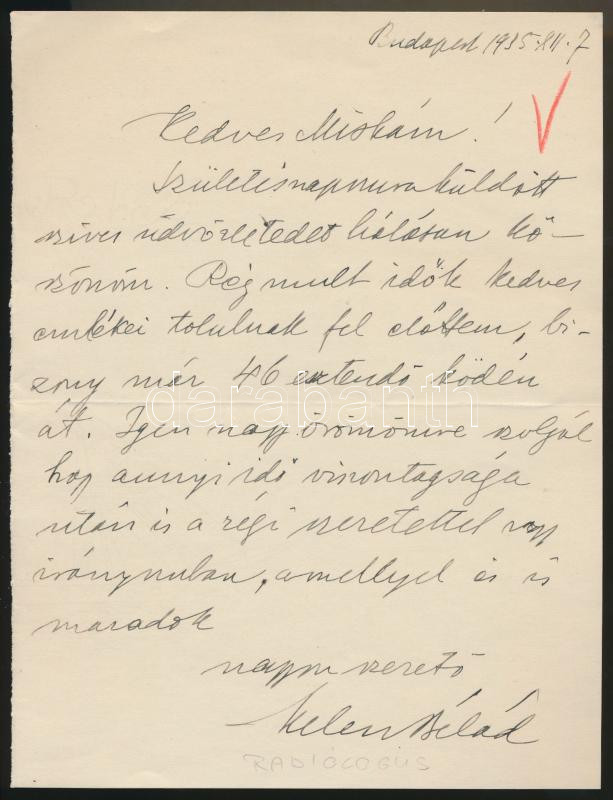 Budapest 1935. XII. 7
Kedves Miskám!
Születésnapomra küldött
szives üdvözletedet hálásan kö-
szönöm. Rég mult idők kedves
emlékei tolulnak fel előttem, bi-
zony már 46 esztendő ködén
át. Igen nagy örömömre szolgál
hogy annyi idő viszontagsága
után is a régi szeretettel vagy
irányomban, amellyel én is
maradok
nagyon szerető
Kelen Bélád
RADIOLOGUS
darabanth